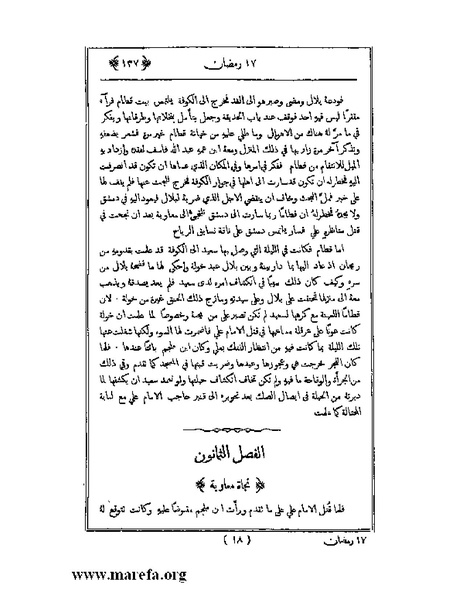 ١٧ رمضان
﴿ ١٣٧ ﴾
فودعهُ بلال ومضى وصبر هو الى الغد فخرج الى الكوفة يلتمس بيت قطام فرآه
مقفرًا ليس فيهِ احد فوقف عند باب الحديقة وجعل يتأمل بنخلاتها وطرقاتها ويفكر
في ما مرَّ لهُ هناك من الاهوال وما طلي عليهِ من خيانة قطام
وتذكر آخر مرة زارها في ذلك المنزل ومعهُ ابن عمهِ عبد الله فاسف لفقده وازداد
الميل للانتقام من قطام ففكر في امرها وفي المكان الذي عساها ان تكون قد انصرفت
اليهِ فخطر لهُ ان تكون قد سارت الى اهلها في جوار الكوفة فخرج للبحث عنها فلم يقف لها
على خبر فملَّ البحث وخاف ان ينقضي الاجل الذي ضربهُ لبلال فيعود اليهِ في دمشق
ولا يجدهُ فخطر لهُ ان قطامًا ربما سارت الى دمشق
قتل مناظره علي فسار يلتمس دمشق على ناقة تسابق الرياح
اما قطام فكانت في الليلة التي وصل بها سعيد الى الكوفة قد علمت بقدومهِ من
ريحان اذ عاد اليها بما دار بينهُ وبين بلال عبد خولة وحكى لها ما فضحهُ بلال من
سرهِ وكيف كان ذلك سببًا في انكشاف امره لدى سعيد فلم يعد يصدقهُ ويذهب
معهُ الى منزلها فحنقت على بلال وعلى سيدته ومازج ذلك الحنق غيرة من خولة لان
قطامًا مع كرهها لسعيد لم تكن تصبر على من يحبهُ وخصوصًا لما علمت ان خولة
كانت عونًا على عرقلة مساعيها في قتل الامام علي فاضمرت لها السوء ولكنها شغلت عنها
تلك الليلة بما كانت فيهِ من انتظار الفتك بعلي وكان ابن ملجم عندها فلما
كان الفجر خرجت هي وعجوزها وعبدها وضربت قبتها في المسجد كما تقدم وفي ذلك
من الجرأة والوقاحة ما فيهِ ولم تكن تخاف انكشاف حيلتها ولو تعمد سعيد ان يكشفها لما
دبرتهُ من الحيلة في ايصال الصك بعد تحويره الى قنبر حاجب الامام علي مع لبابة
المحتالة كما علمت
الفصل الثمانون
﴿ نجاة معاوية ﴾
فلما قُتل الامام علي على ما تقدم ورأت ابن ملجم مقبوضًا عليهِ وكانت تتوقع لهُ
١٧ رمضان
( ١٨ )
www.marefa.org